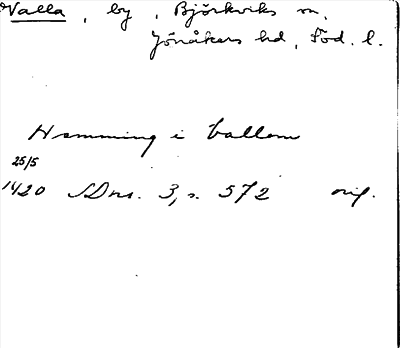 Valla, by, Björkviks sn,
Jönåkers hd, Söd. l.
Hemming i Vallom
25/5
1420 SDns. 3, s. 572 orig.